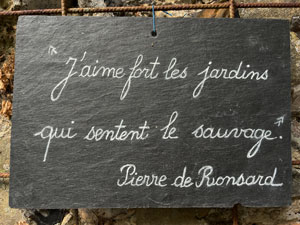 "J'aime fort les jardins
qui sentent le sauvage."
Pierre de Ronsard